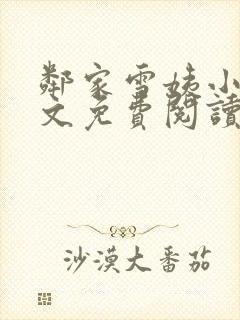 鄰家雪姨小
文免費閱讀
沙漠大番茄